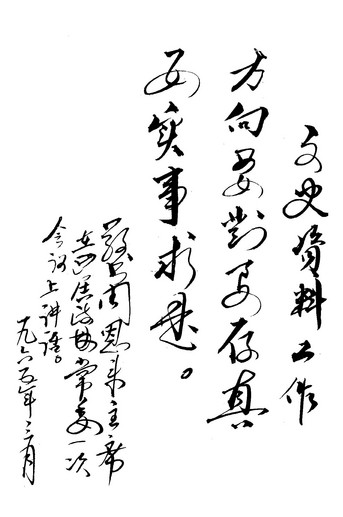 文史資料工作
方向要對要存真
要实事求是。
周恩来主席
在四届政协常委一次
会议上讲话。
一九六五年三月